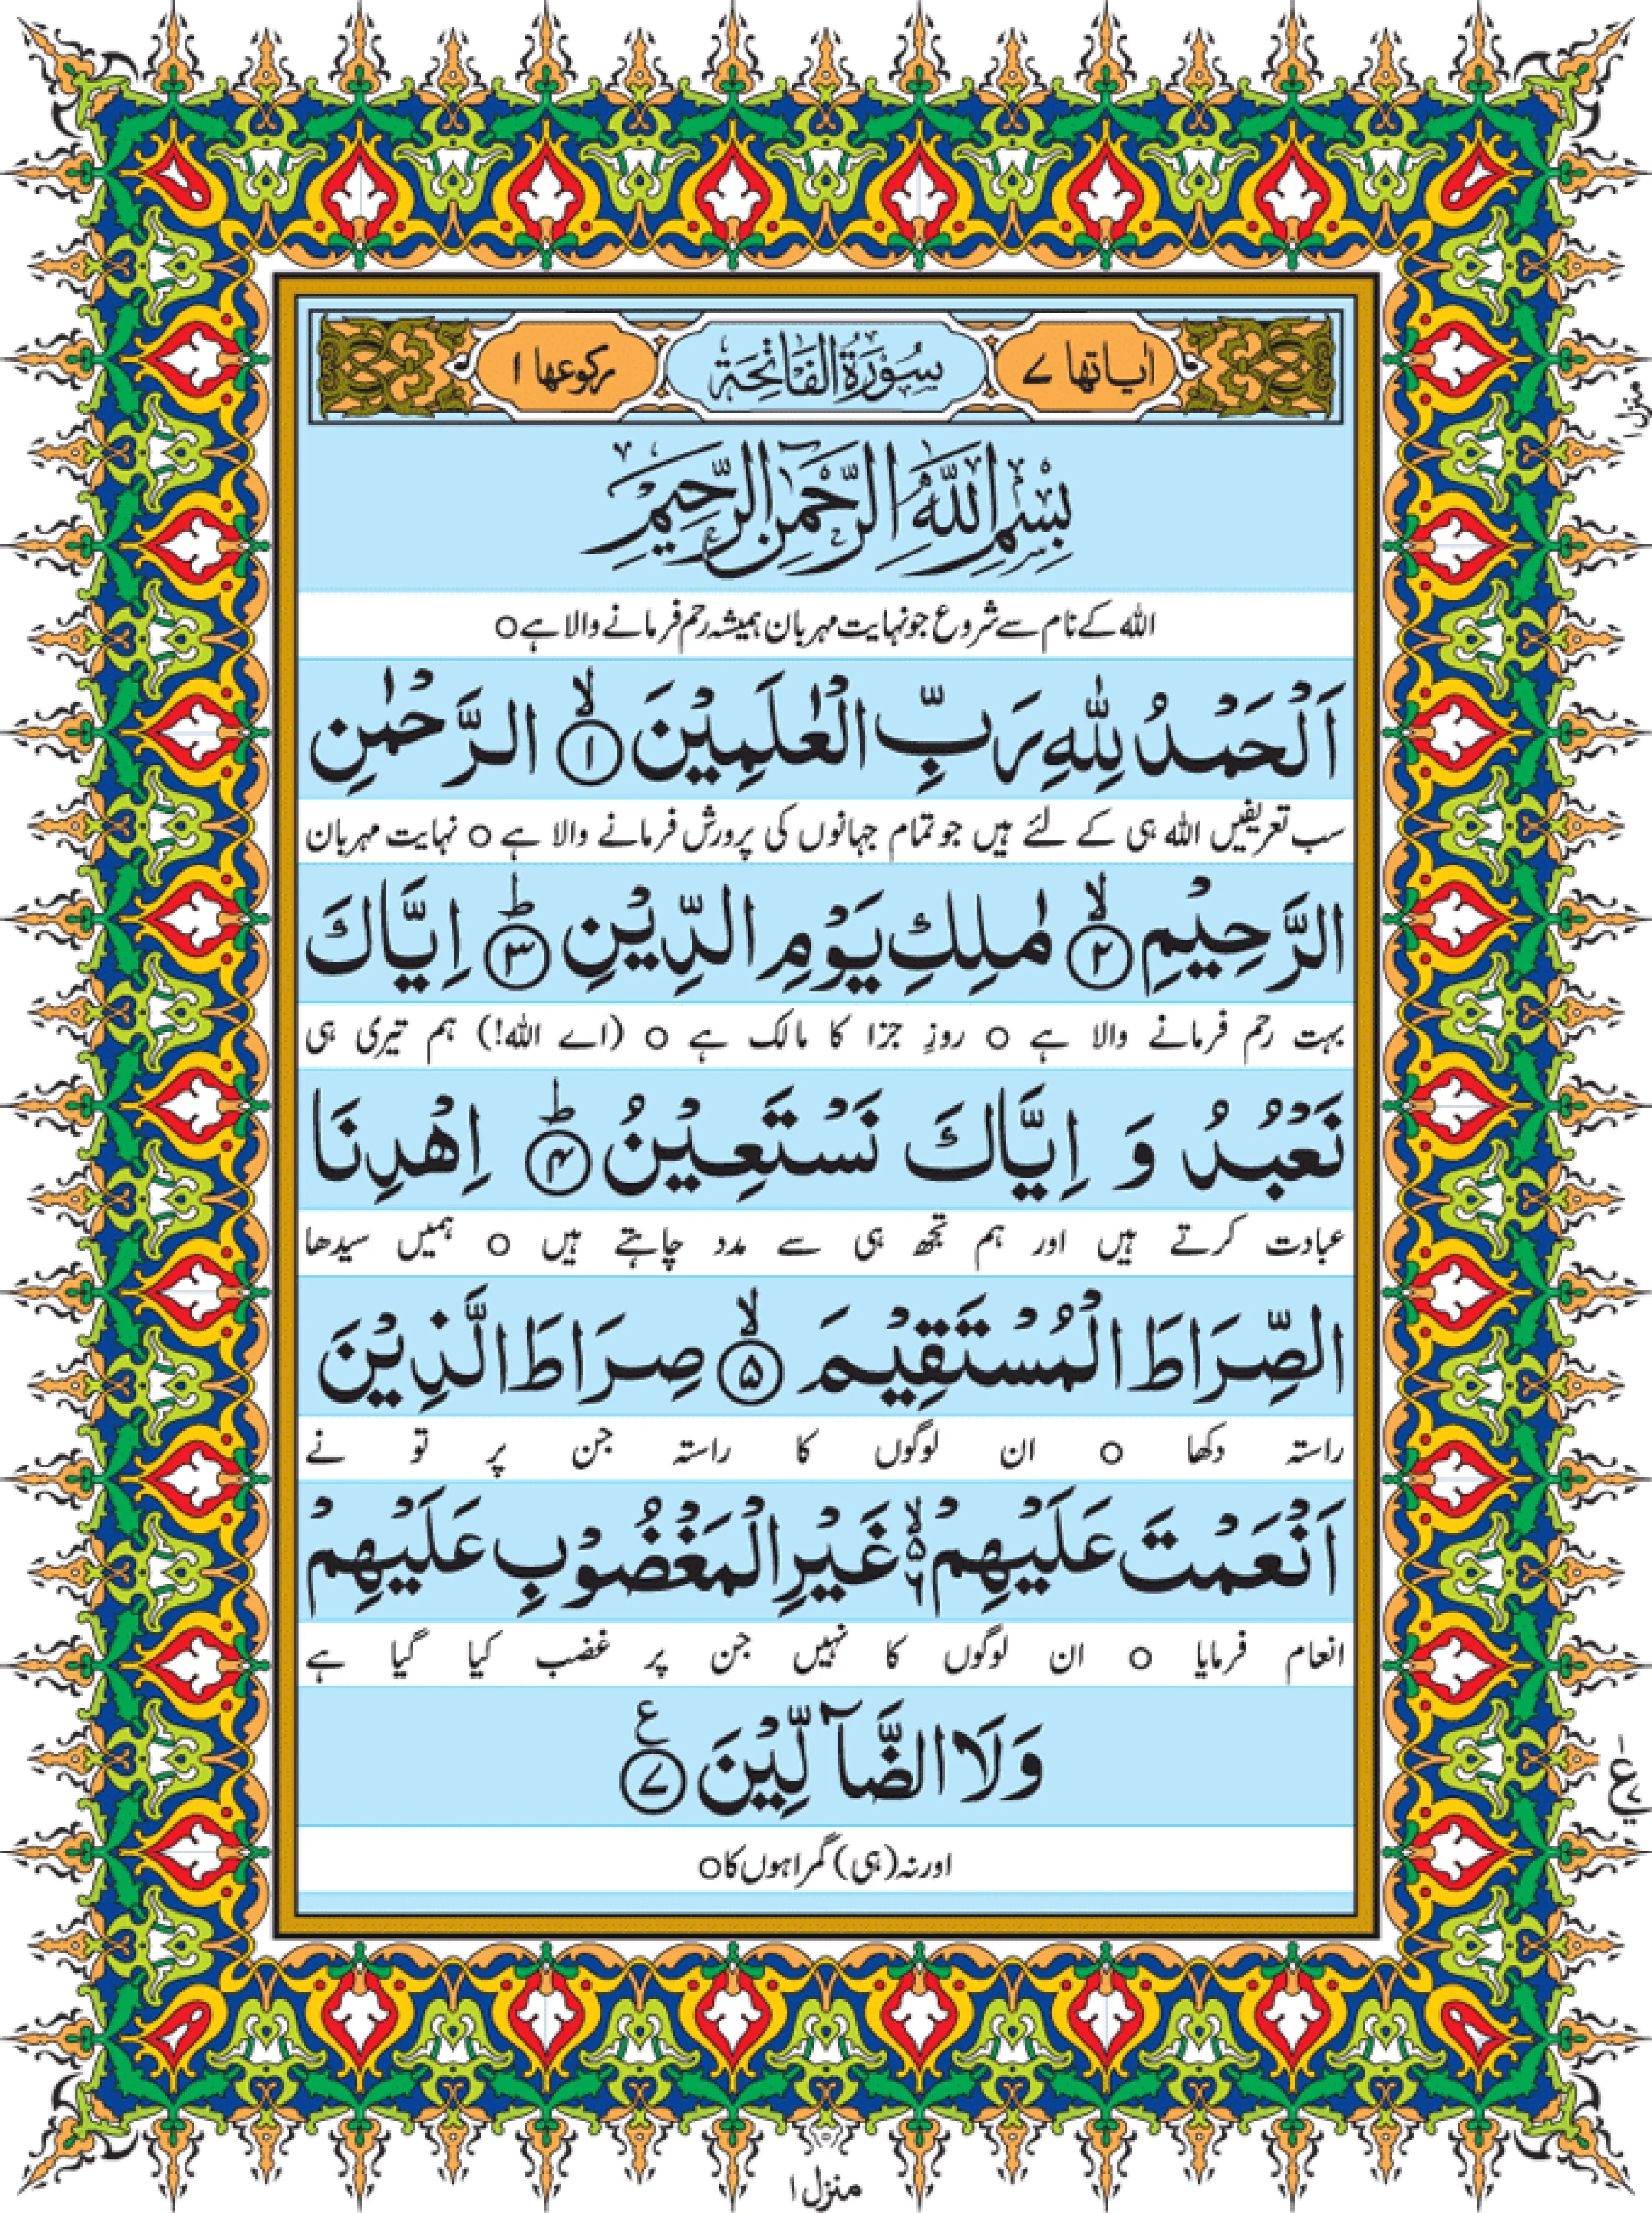 اٰیاتها ٧ سُوْرَةُ الْفَاتِحَة رکوعها ١
بِسْمِ اللّٰهِ الرَّحْمٰنِ الرَّحِيْمِ
الله کے نام سے شروع جو نہایت مہربان ہمیشہ رحم فرمانے والا ہے ○
اَلْحَمْدُ لِلّٰهِ رَبِّ الْعٰلَمِيْنَ ۙ﴿۱﴾ الرَّحْمٰنِ
سب تعریفیں الله ہی کے لئے ہیں جو تمام جہانوں کی پرورش فرمانے والا ہے ○ نہایت مہربان
الرَّحِيْمِ ۙ﴿۲﴾ مٰلِكِ يَوْمِ الدِّيْنِ ؕ﴿۳﴾ اِيَّاكَ
بہت رحم فرمانے والا ہے ○ روزِ جزا کا مالک ہے ○ (اے الله!) ہم تیری ہی
نَعْبُدُ وَ اِيَّاكَ نَسْتَعِيْنُ ؕ﴿۴﴾ اِهْدِنَا
عبادت کرتے ہیں اور ہم تجھ ہی سے مدد چاہتے ہیں ○ ہمیں سیدھا
الصِّرَاطَ الْمُسْتَقِيْمَ ۙ﴿۵﴾ صِرَاطَ الَّذِيْنَ
راستہ دکھا ○ ان لوگوں کا راستہ جن پر تو نے
اَنْعَمْتَ عَلَيْهِمْ ۙ۵ ۶ غَيْرِ الْمَغْضُوْبِ عَلَيْهِمْ
انعام فرمایا ○ ان لوگوں کا نہیں جن پر غضب کیا گیا ہے
وَلَا الضَّآلِّيْنَ ﴿۷﴾ ع
اور نہ (ہی) گمراہوں کا ○
منزل ١
منزل ١